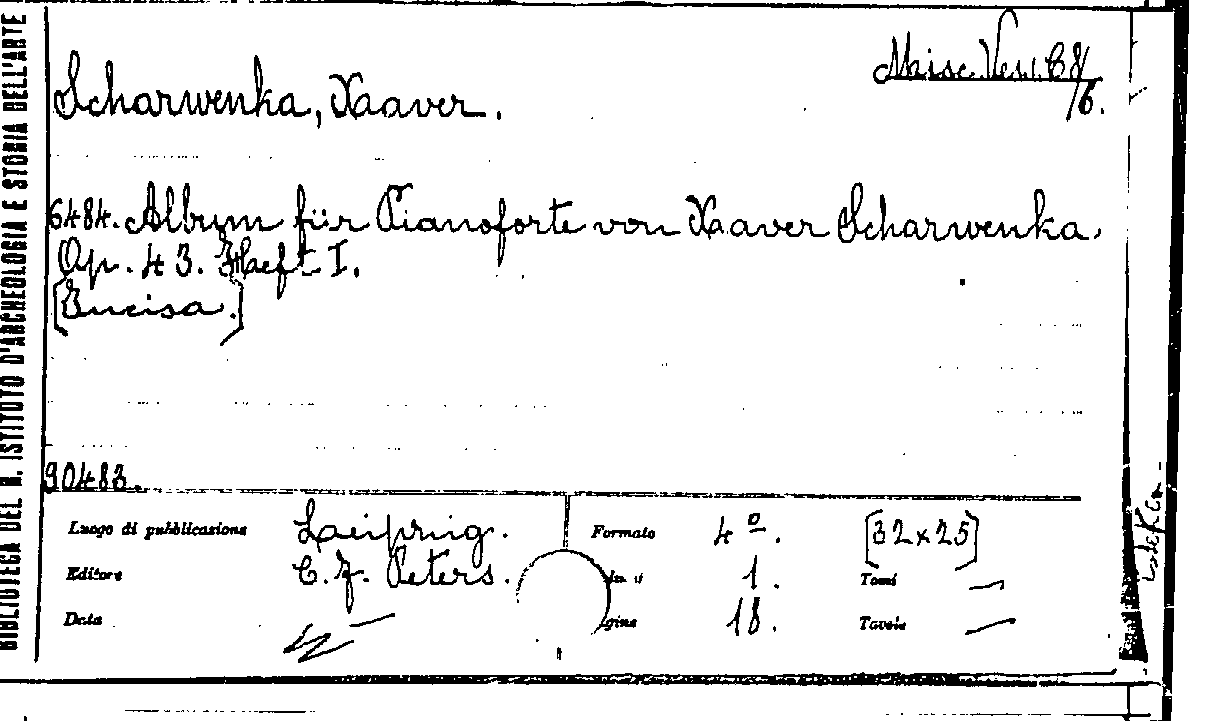 BIBLIOTECA DEL R. ISTITUTO D'ARCHEOLOGIA E STORIA DELL'ARTE
Misc. Ves. C 8/
/6.
Scharwenka, Xaaver.
6484. Album für Pianoforte von Xaaver Scharwenka.
Op. 43. Haeft I.
[Incisa.]
90483.
Luogo di pubblicazione Leipzig. Formato 4º. [32x25]
Editore C. F. Peters. 1. Tomi —
Data gine 18. Tavole —